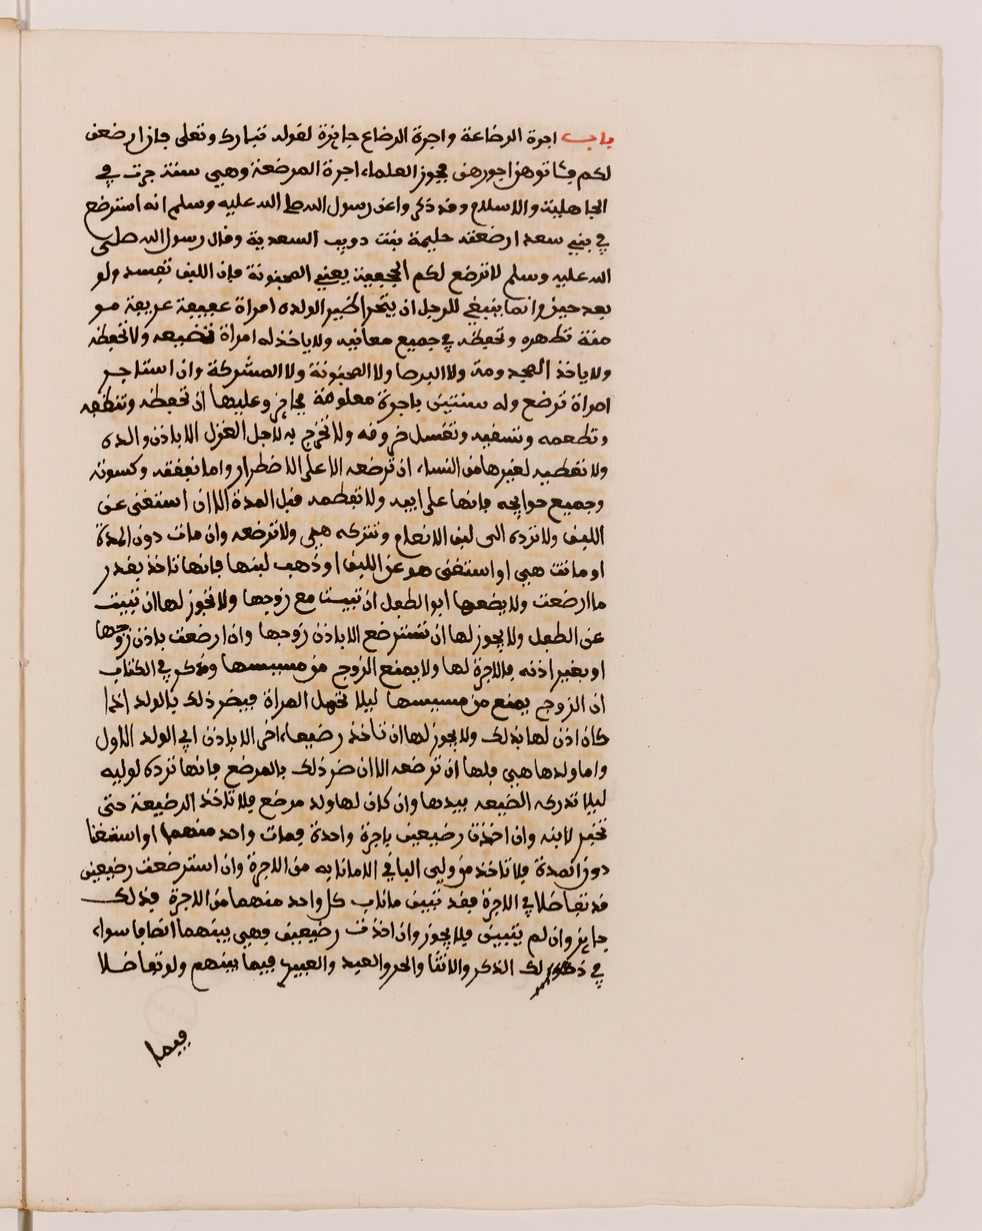 باب اجرة الرضاعة واجرة الرضاع جايزة لقوله تبارك وتعلى فان ارضعن
لكم فـاتوهن اجورهن فجوز العلماء اجرة المرضعة وهي سنة جرت في
الجاهلية والاسلام وقد ذكر واعن رسول الله صلى الله عليه وسلم انه استرضع
في بني سعد ارضعته حليمة بنت دويب السعدية وقال رسول الله صلى
الله عليه وسلم لا ترضع لكم يعني المجنونة فان اللبن تفسد ولو
بعد حين وانما ينبغي للرجل ان يتحرا لولده امراة عفيفة عريفة مو
منة تطهره وتحفظه في جميع معانيه ولا ياخذ له امراة تضيعه ولا تحفظه
ولا ياخذ المجدومة ولا البرصا ولا المجنونة ولا المشركة وان استاجر
امراة ترضع وله سنتين باجرة معلومة فجايز وعليها ان تحفظه وتنظفه
وتطعمه وتسقيه وتغسل خروقه ولا تخرج به لاجل الغزل الا باذن والده
ولا تعطيه لغيرها من النساء ان ترضعه الا على الاضطرار واما نفقته وكسوته
وجميع حوايجه فانها على ابيه ولا تفطمه قبل المدة الا ان استغنى عن
اللبن ولا ترده الى لبن الانعام وتتركه هي ولا ترضعه وان مات دون المدة
او ماتت هي او استغنى هو عن اللبن او ذهب لبنها فانها تاخذ بقدر
ما ارضعت ولا يضعها ابو الطفل ان تبيت مع زوجها ولا يجوز لها ان تبيت
عن الطفل ولا يجوز لها ان تسترضع الا باذن زوجها وان ارضعت باذن زوجها
او بغير اذنه فالاجرة لها ولا يمنع الزوج من مسيسها وذكر في الكتاب
ان الزوج يمنع من مسيسها ليلا تحمل المراة فيضر ذلك بالولد اذا
كان اذن لها بذلك ولا يجوز لها ان تاخذ رضيعا اخر الا باذن ابي الولد الاول
واما ولدها هي فلها ان ترضعه الا ان ضر ذلك بالمرضع فانها ترده لوليه
ليلا تدركه الضيعه بيدها وان كان لها ولد مرضع فلا تاخذ الرضيعة حتى
تخبر لابنه وان اخذت رضيعين باجرة واحدة فمات واحد منهما او استغنا
دون المدة فلا تاخذ من ولي الباقي الا مانابه من الاجرة وان استرضعت رضيعين
قد تفاضلا في الاجرة فقد تبين ماناب كل واحد منهما من الاجرة فذلك
جايز وان لم يتبين فلا يجوز وان اخذت رضيعين فهي بينهما انصافا سواء
في ذلك الذكر والانثا والحر والعبد والعبيد فيما بينهم ولو تفاضلا
فيما